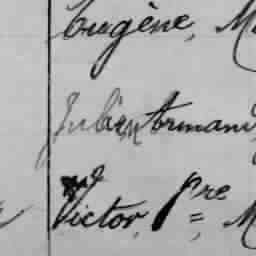 Eugène, M
Julien Armand,
Victor, Pre =, M